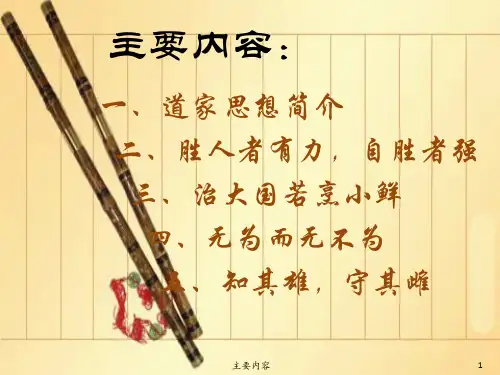 主要内容：
一、道家思想简介
二、胜人者有力，自胜者强
三、治大国若烹小鲜
四、无为而无不为
五、知其雄，守其雌
主要内容
1